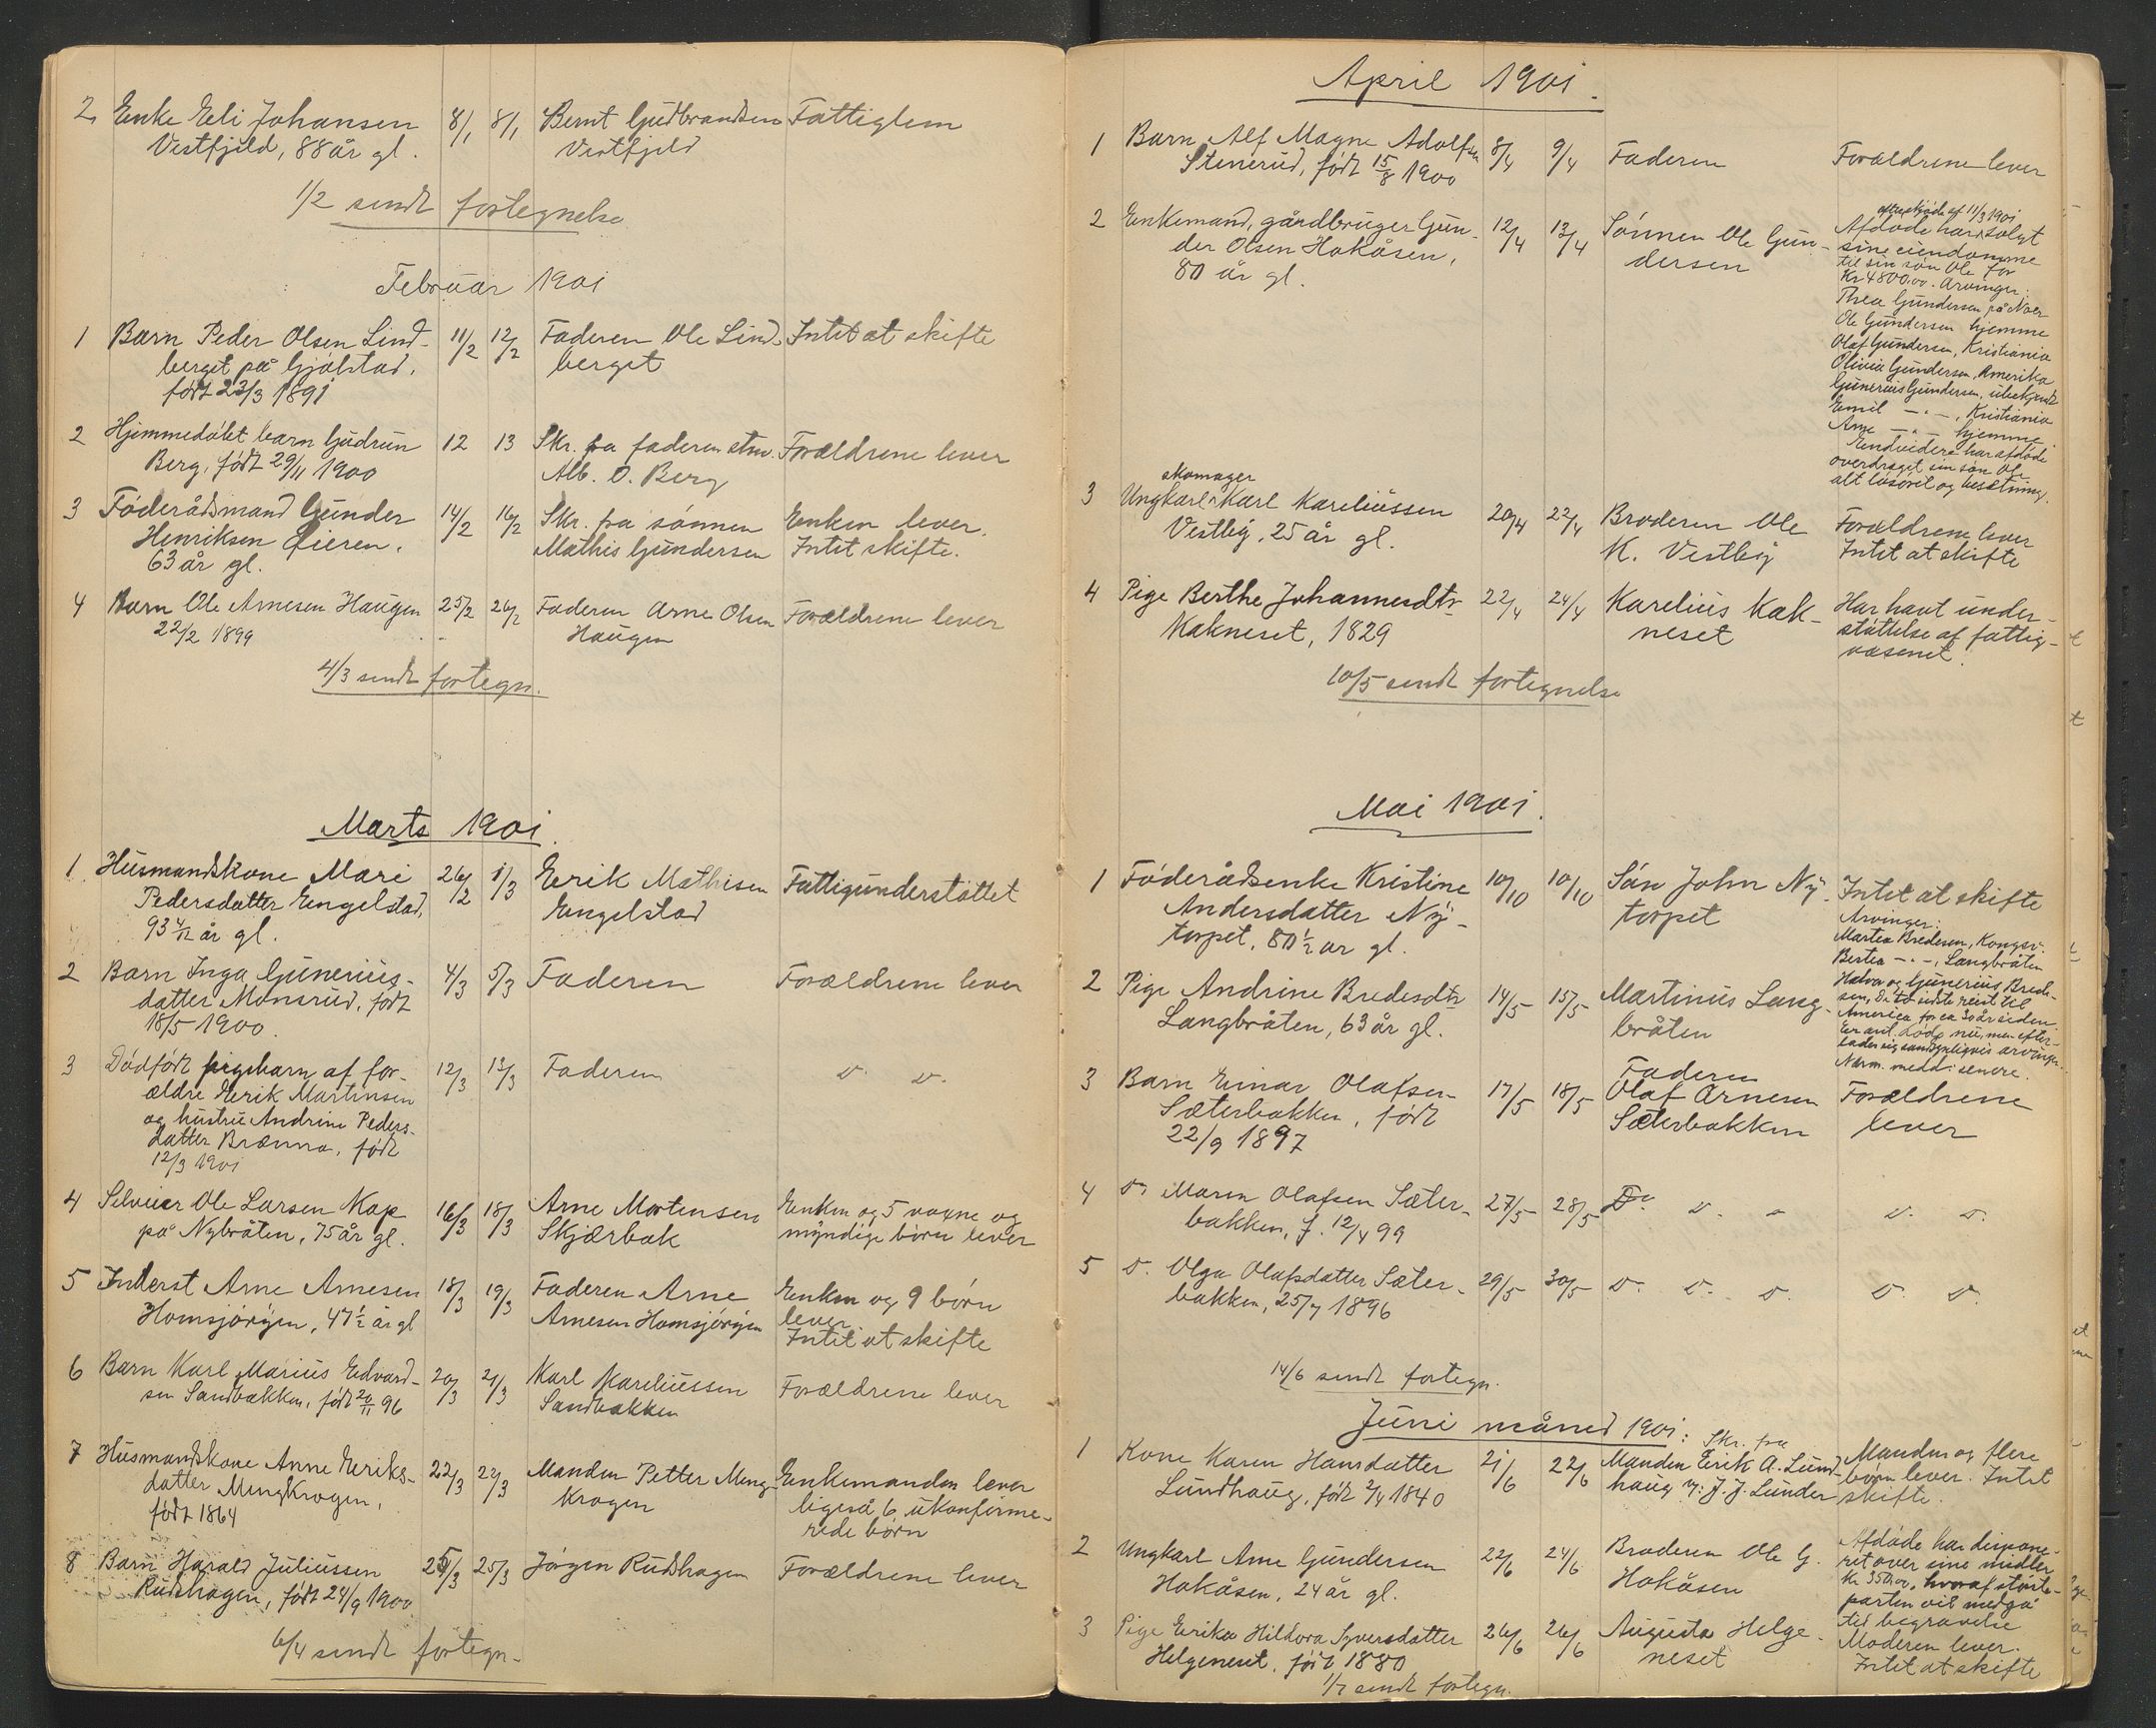 2, Enke Eli Johansen 8/1 8/1 Bernt Gudbrandsen Fattiglem
Vestfjeld, 88 år gl. Vestfjeld
1/2 sendt fortegnelse
Februar 1901
1 Barn Peder Olsen Lind- 11/2 12/2 Faderen Ole Lind- Intet at skifte
berget på Gjölstad, berget
født 23/3 1891
2 Hjemmedøbt barn Gudrun 12 13 Skr. fra faderen stm. Forældrene lever
Berg, født 29/11 1900 Alb. O. Berg
3 Föderådsmand Gunder 14/2 16/2 Skr. fra sönnen Enken lever.
Henriksen Øieren, Mathis Gundersen Intet skifte.
63 år gl.
4 Barn Ole Arnesen Haugen 25/2 26/2 Faderen Arne Olsen Forældrene lever
22/2 1899 Haugen
4/3 sendt fortegn.
Marts 1901.
1. Husmandskone Mari 26/2 1/3 Eerik Mathisen Fattigunderstöttet
Pedersdatter Engelstad, Engelstad
93 4/12 år gl.
2 Barn Inga Gunerius- 4/3 5/3 Faderen Forældrene lever
datter Monsrud, født
18/5 1900.
3 Dödfödt pigebarn af for- 12/3 13/3 Faderen D. D.
ældre Eerik Martinsen
og hustru Andrine Peders-
datter Brænna, født
12/3 1901
4 Selveier Ole Larsen Kap 16/3 18/3 Arne Mortensen Enken og 5 voxne og
på Nybråten, 75 år gl. Skjærbak myndige börn lever
5 Inderst Arne Arnesen 18/3 19/3 Faderen Arne Enken og 9 börn
Homsjörgen, 47 1/2 år gl Arnesen Homsjörgen lever.
Intet at skifte
6 Barn Karl Marius Edvard- 20/3 21/3 Karl Kareliussen Forældrene lever
sen Sandbakken, født 20/11 96 Sandbakken
7 Husmandskone Anne Eeriks- 22/3 22/3 Manden Petter Meng- Enkemanden lever
datter Mengkrogen, krogen ligeså 6 ukonfirme-
født 1864 rede börn
8 Barn Harald Juliussen 25/3 25/3 Jörgen Rudshagen Forældrene lever
Rudshagen, født 24/9 1900
6/4 sendt fortegn.
April 1901.
1 Barn Alf Magne Adolfsen 8/4 9/4 Faderen Forældrene lever
Stenerud, født 15/8 1900
2 Enkemand, gårdbruger Gun- 12/4 13/4 Sönnen Ole Gun-
der Olsen Hokåsen, dersen
80 år gl.
efter skjöde af 11/3 1901
Afdöde har solgt
sine eiendomme
til sin sön Ole for
Kr 4800.00. Arvinger:
Thea Gundersen på Noer
Ole Gundersen hjemme
Olaf Gundersen, Kristiania
Olivia Gundersen, Amerika
Gunerius Gundersen, ubekjendt
Emil — " —, Kristiania
Arne — " — hjemme.
Endvidere har afdöde
overdraget sin sön Ole
alt lösöret og besætning.
skomager
3 Ungkarl Karl Kareliussen 20/4 22/4 Broderen Ole Forældrene lever
Vestby, 25 år gl. K. Vestby Intet at skifte
4 Pige Berthe Johannesdtr 22/4 24/4 Karelius Kak- Har havt under-
Kakneset, 1829 neset støttelse af fattig-
væsenet.
10/5 sendt fortegnelse
Mai 1901.
1 Föderådsenke Kristine 10/10 10/10 Sön John Ny- Intet at skifte
Andersdatter Ny- torpet
torpet, 80 1/2 år gl.
2 Pige Andrine Bredesdtr 14/5 15/5 Martinus Lang-
Langbråten, 63 år gl. bråten
Arvinger:
Martea Bredesen, Kongsv.
Bertea — " —, Langbråten
Halvor og Gunerius Brede-
sen, De to sidste reist til
America for ca 30 år siden.
Er ant. döde nu, men efter-
lader sig sandsynligvis arvinger.
Nærm. medd. senere.
3 Barn Einar Olafsen 17/5 18/5 Faderen
Sæterbakken, født Olaf Arnesen Forældrene
22/9 1897 Sæterbakken lever
4 D. Maren Olafsen Sæter- 27/5 28/5 Do D. " D. D.
bakken, f. 12/4 99
5 D. Olga Olafsdatter Sæter- 29/5 30/5 D. D. D. D. D.
bakken, 25/7 1896
14/6 sendt fortegn.
Juni måned 1901:
1 Kone Karen Hansdatter 21/6 22/6 Skr. fra Manden og flere
Lundhaug, født 2/4 1840 Manden Eerik A. Lund- börn lever. Intet
haug v: J. J. Lunder skifte.
2 Ungkarl Arne Gundersen 22/6 24/6 Broderen Ole G.
Hokåsen, 24 år gl. Hokåsen
Afdöde har dispone-
ret over sine midler
Kr 350.00, hvoraf störste-
parten vil medgå
til begravelse
3 Pige Eerika Hildora Syversdatter 26/6 26/6 Augusta Helge- Moderen lever.
Helgeneset, født 1880 neset Intet at skifte
1/7 sendt fortegn.